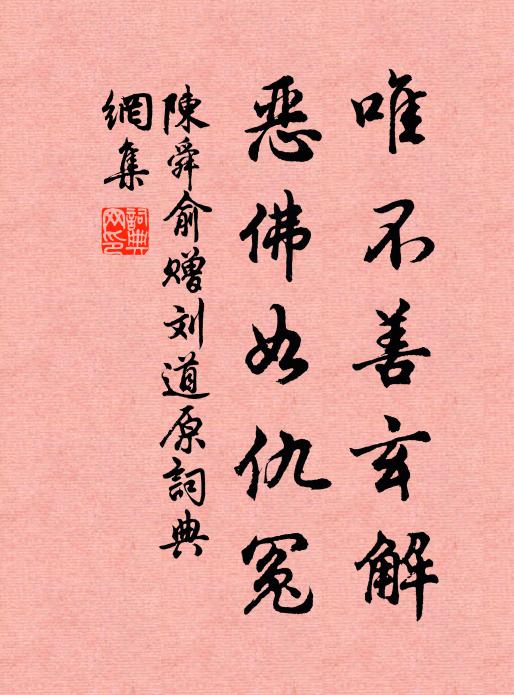 唯不善玄解
恶佛如仇冤
陳舜俞赠刘道原詞典
網集
詞典网印